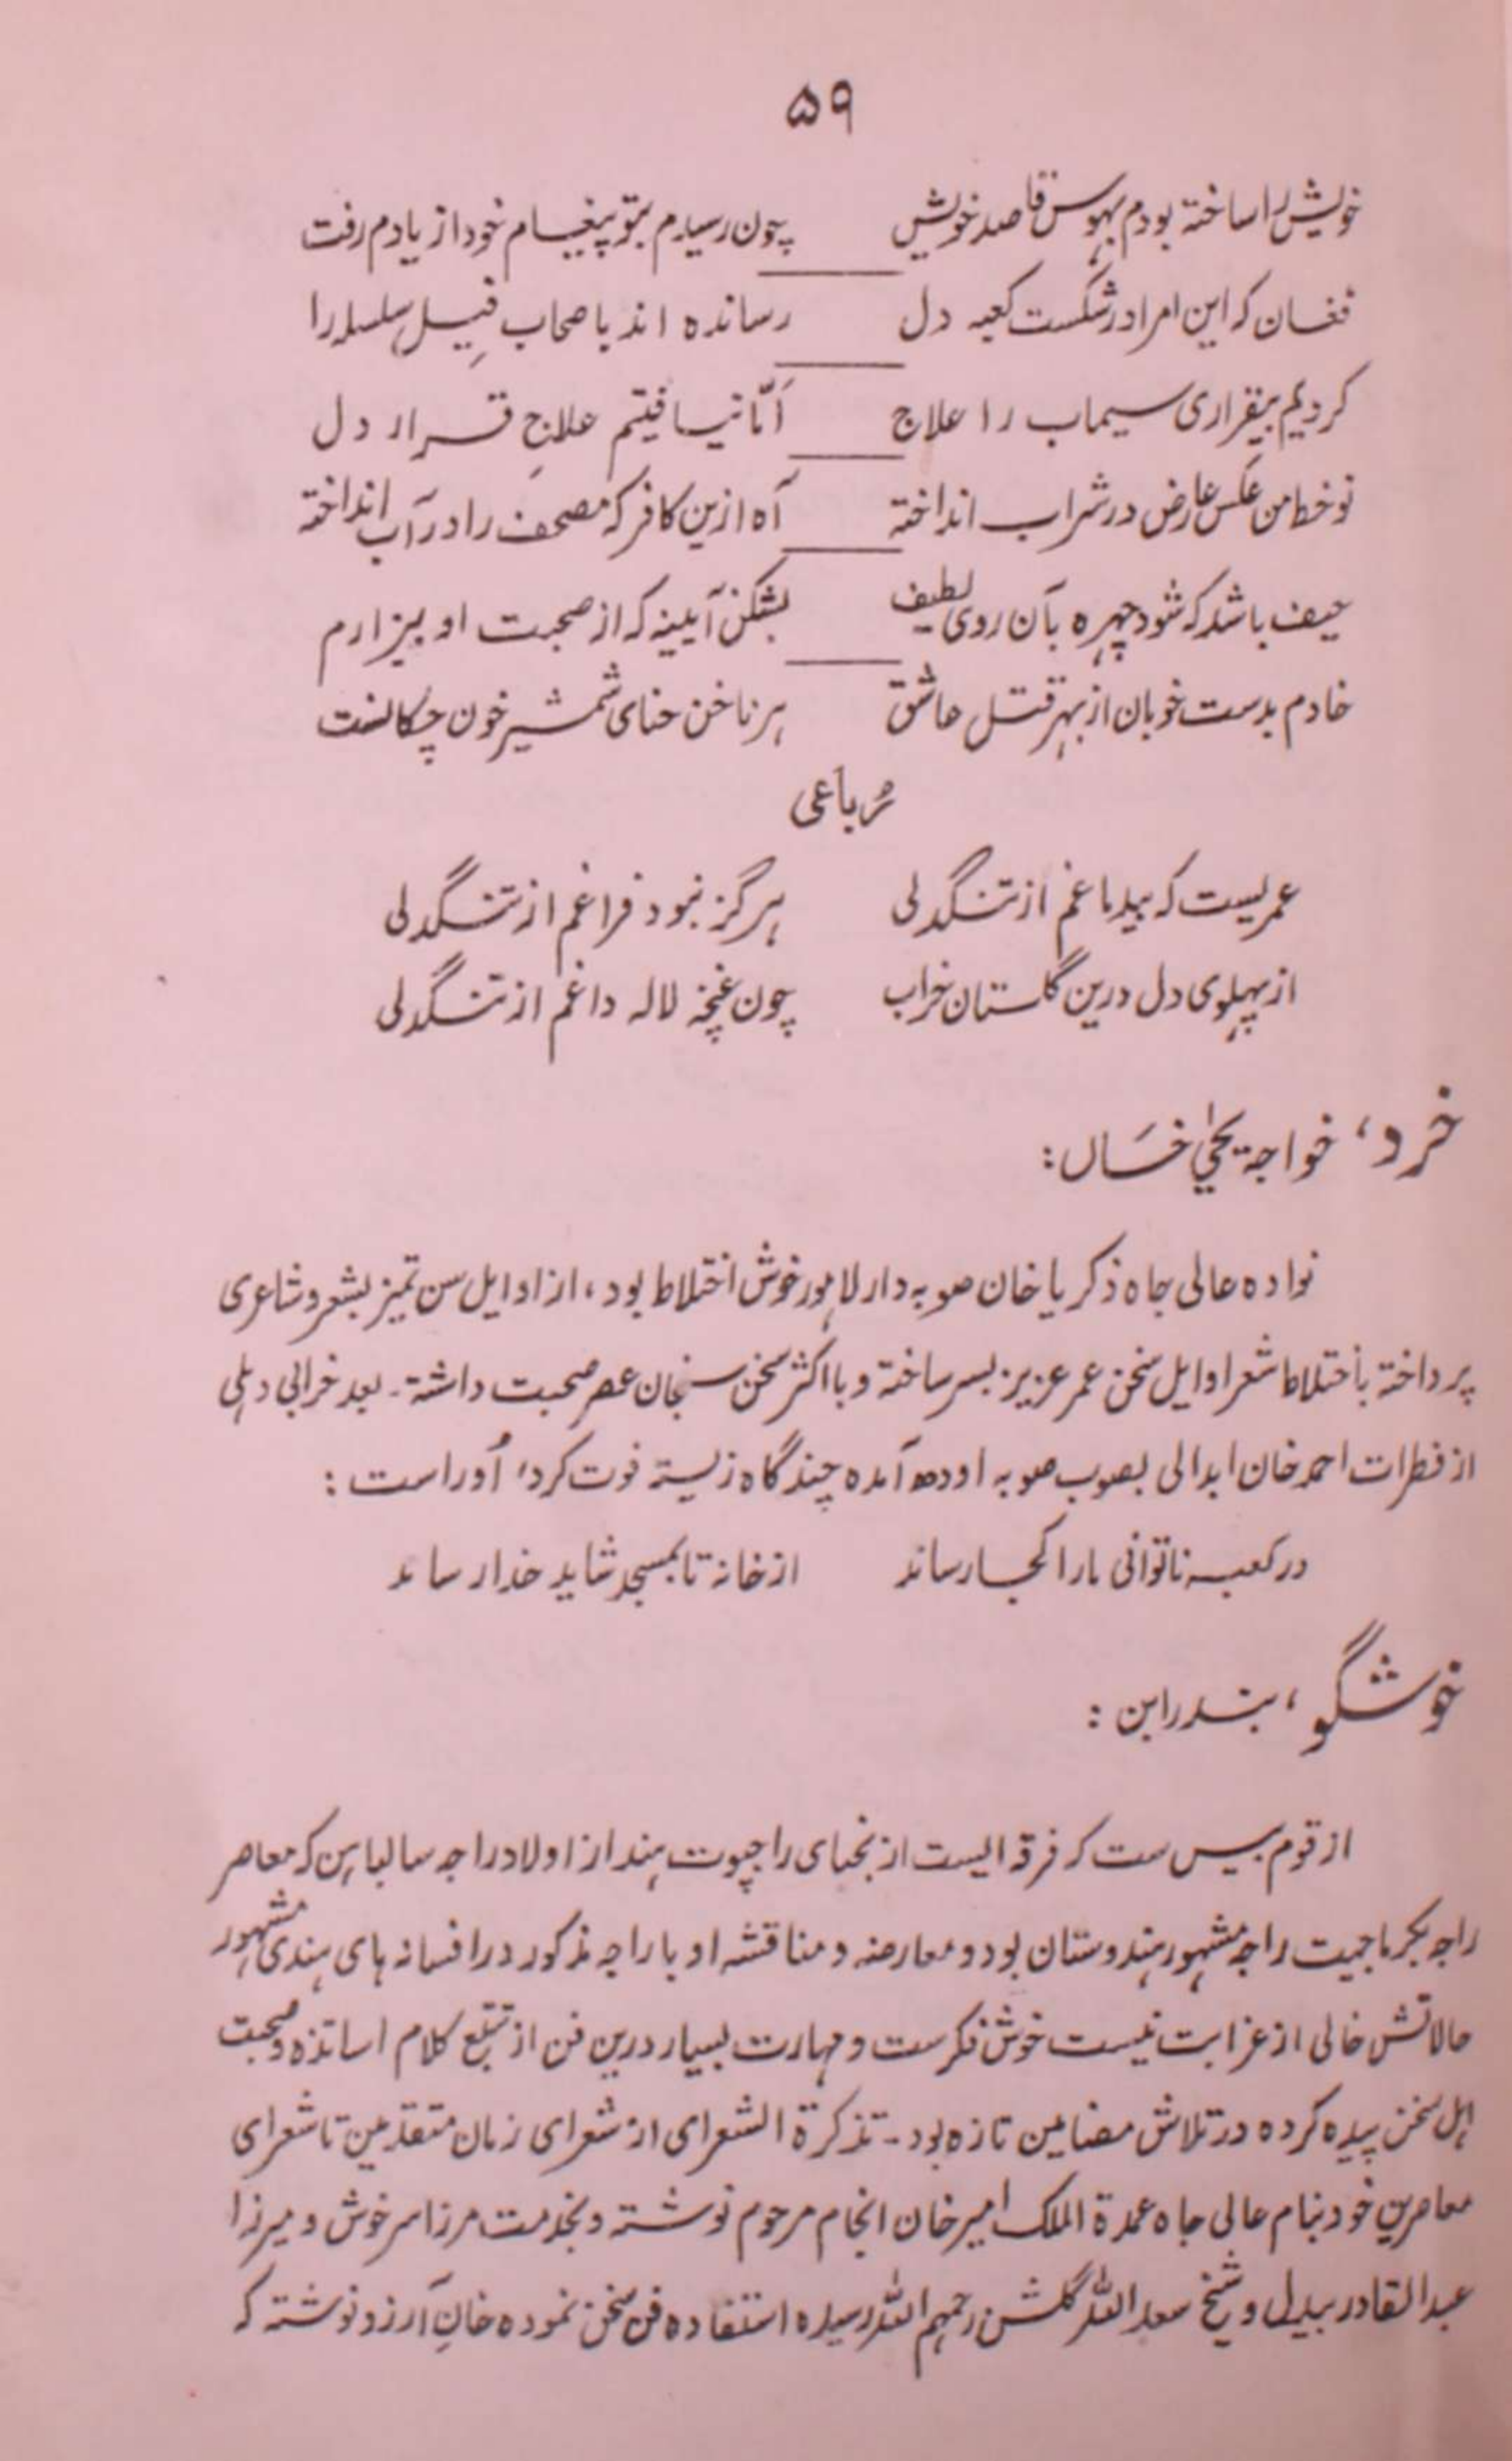 ۵۹
خویش را ساخته بودم بہوس قاصد خویش چون رسیدم بتو پیغام خود از یادم رفت
فغان کہ این امرا در شکست کعبہ دل رساندہ اند باصحاب فیل سلسلہ را
کردیم بیقراری سیماب را علاج امّا نیافتیم علاجِ قرار دل
نوخط من عکس عارض در شراب انداختہ آہ ازین کافر کہ مصحف را در آب انداختہ
حیف باشد کہ شود چہرہ بآن روی لطیف بشکن آیینہ کہ از صحبت او بیزارم
خادم بدست خوبان از بہر قتل عاشق ہر ناخن حنای شمشیر خون چکانست
رُباعی
عمریست کہ بیدماغم از تنگدلی ہرگز نبود فراغم از تنگدلی
از پہلوی دل درین گلستان خراب چون غنچۂ لالہ داغم از تنگدلی
خرد، خواجہ یحییٰ خَاں:
نوادہ عالی جاہ ذکریا خان صوبہ دار لاہور خوش اختلاط بود، از اوایل سن تمیز بشعر و شاعری
پرداختہ باختلاط شعرا و اہل سخن عمر عزیز بسر ساختہ و با اکثر سخن سنجان عصر صحبت داشتہ۔ بعد خرابی دہلی
از فطرات احمد خان ابدالی بصوب صوبہ اودھ آمدہ چند گاہ زیستہ فوت کرد، اُوراست:
در کعبہ ناتوانی ما را کجا رساند از خانہ تا بمسجد شاید خدا رساند
خوشگو، بندرابن:
از قوم بیس ست کہ فرقہ ایست از نجبای راجپوت ہند از اولاد راجہ سالباہن کہ معاصر
راجہ بکرماجیت راجہ مشہور ہندوستان بود و معارضہ و مناقشہ او با راجہ مذکور در افسانہ ہای ہندی مشہور
حالاتش خالی از غرابت نیست خوش فکرست و مہارت بسیار درین فن از تتبع کلام اساتذہ و صحبت
اہل سخن پیدہ کردہ در تلاش مضامین تازہ بود۔ تذکرۃ الشعرای از شعرای زمان متقدمین تا شعرای
معاصرین خود بنام عالی جاہ عمدۃ الملک امیر خان انجام مرحوم نوشتہ و بخدمت مرزا سرخوش و میرزا
عبدالقادر بیدل و شیخ سعد اللہ گلشن رحمہم اللہ رسیدہ استفادہ فن سخن نمودہ خانِ آرزو نوشتہ کہ